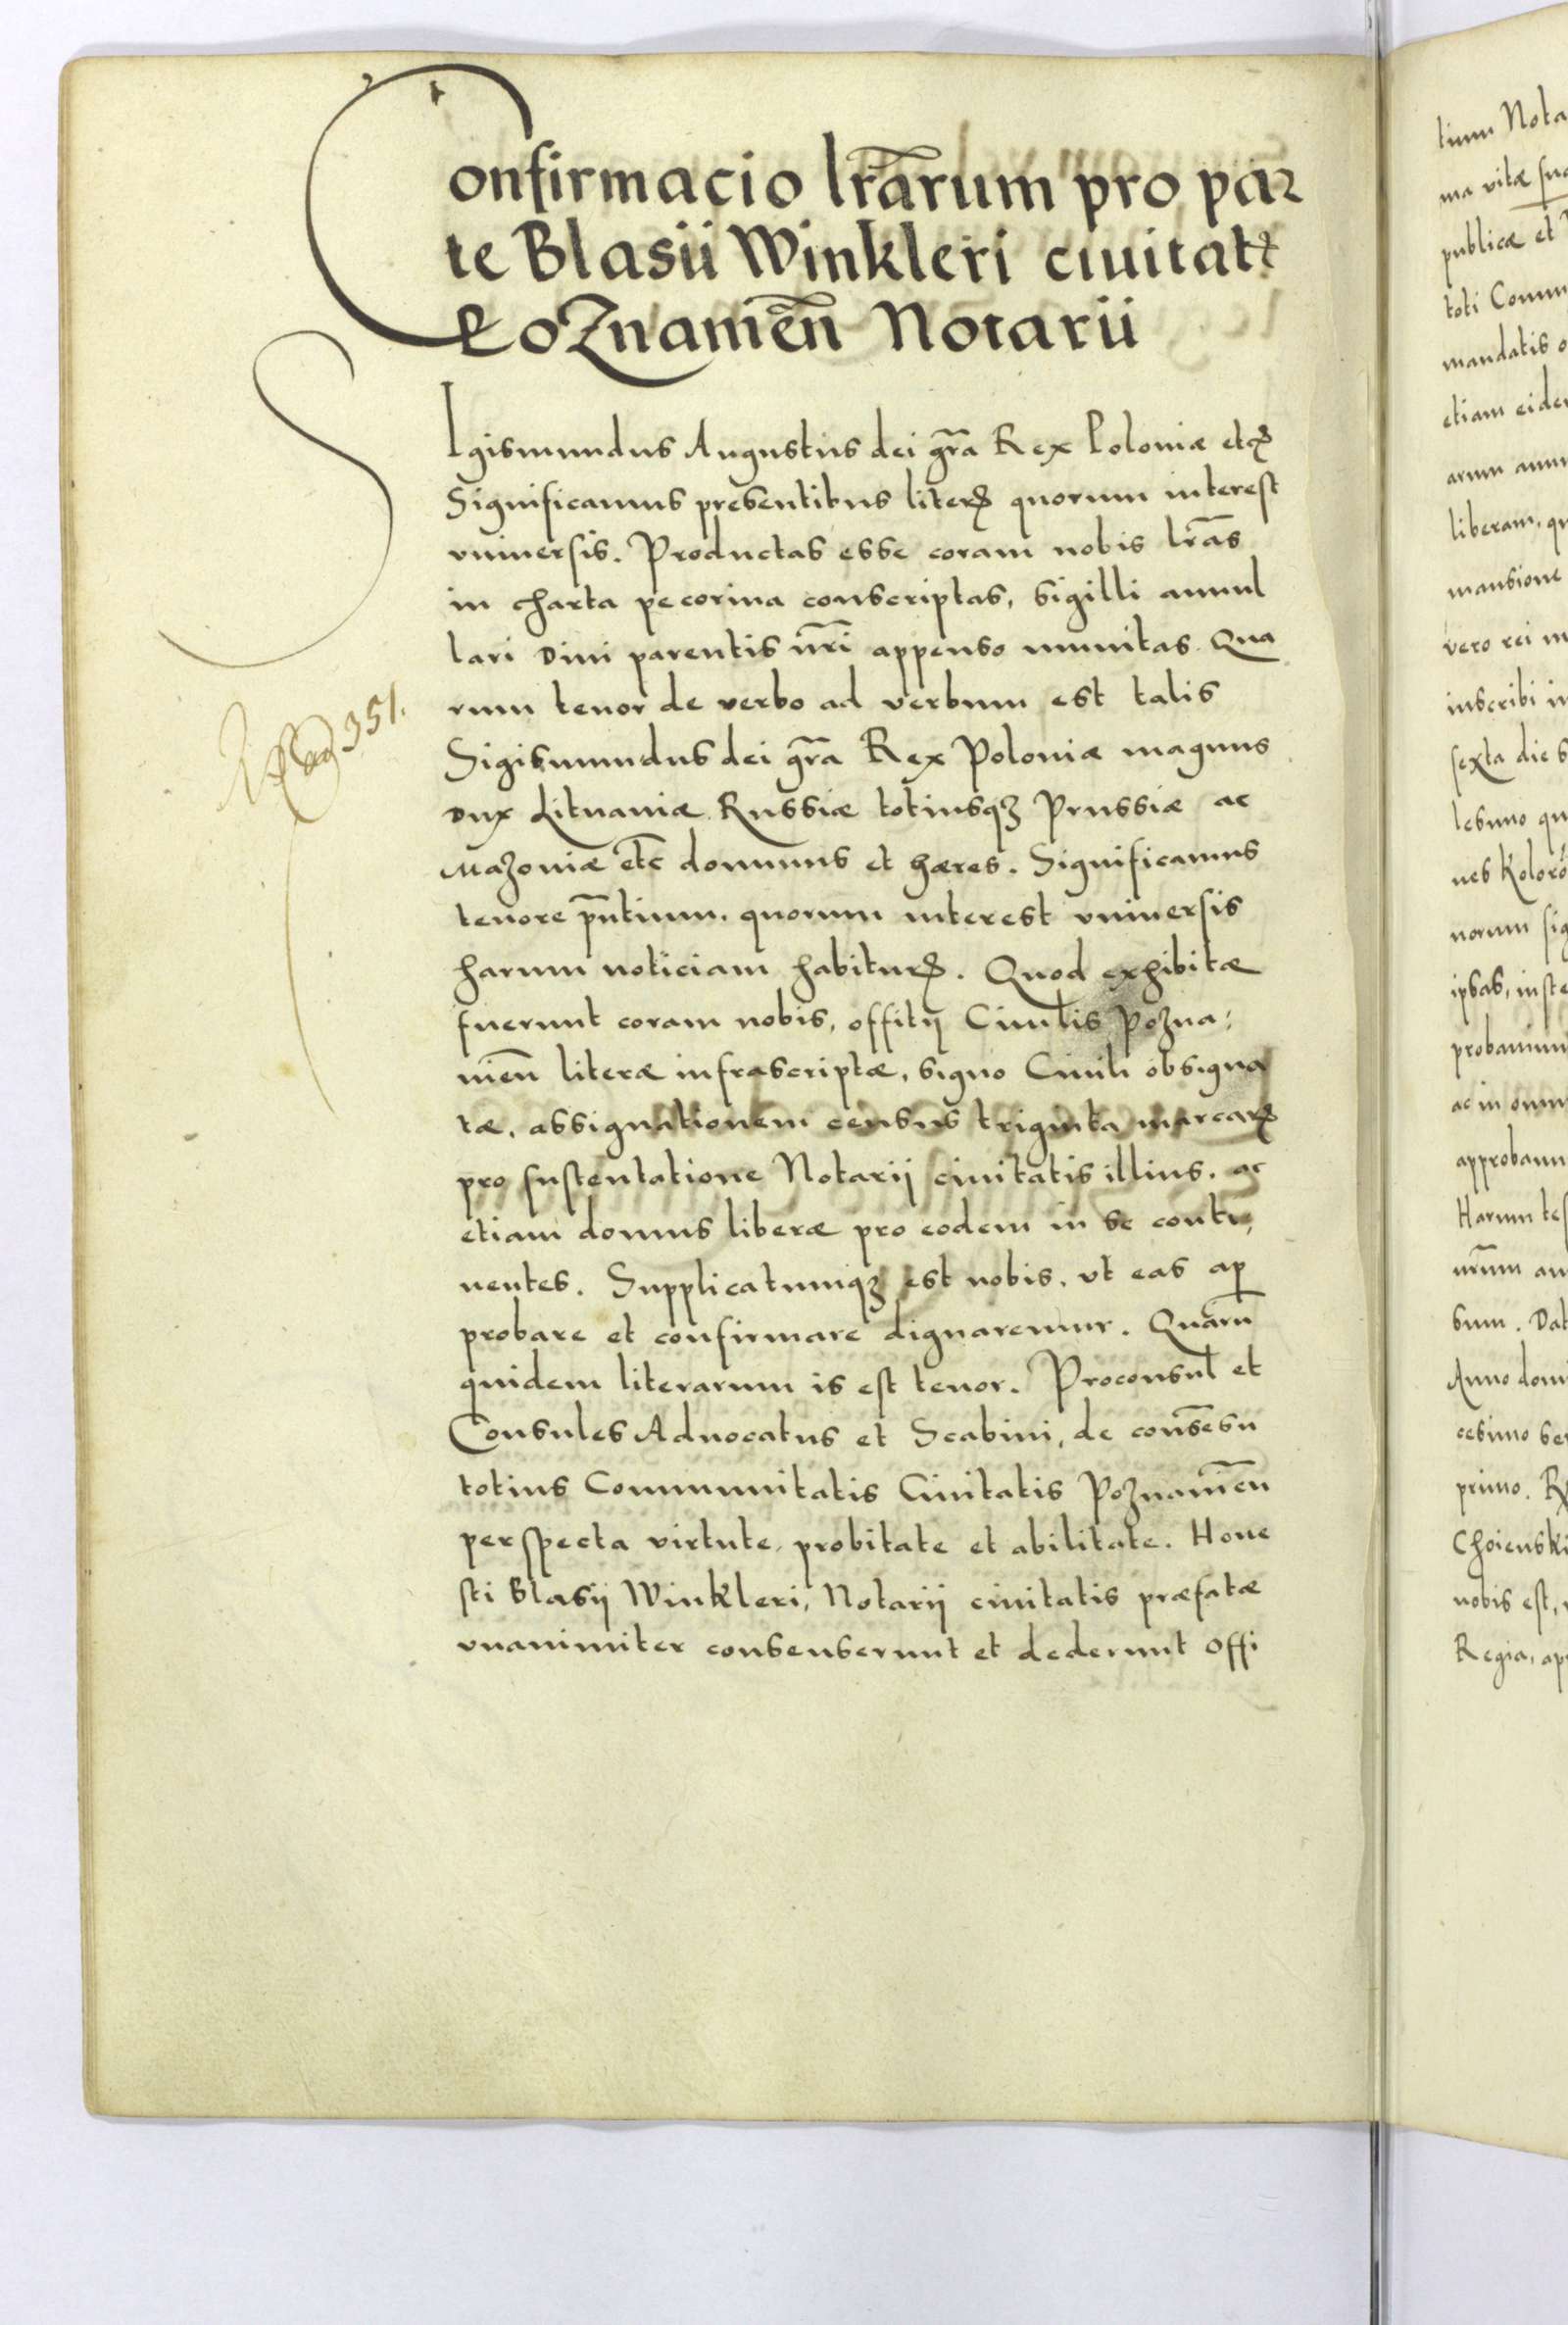 Confirmacio lr̃arum pro par
te Blasii Winkleri ciuitatꝭ
Poznameñ Notarii
SIgismundus Augustus dei gr̃a Rex Poloniæ etcꝭ
Significamus presentibus literꝭ quorum interest
vniuersis. Productas esse coram nobis lr̃as
in charta pecorina conscriptas, sigilli annul
lari Diui parentis nr̃i appenso munitas. Qua
rum tenor de verbo ad verbum est talis
Sigismundus dei gr̃a Rex Poloniæ magnus
Dux Lituaniæ Russiæ totiusqꝫ Prussiæ ac
Mazoniæ etc̃ dominus et hæres. Significamus
tenore pñtium. quorum interest vniuersis
harum noticiam habiturꝭ. Quod exhibitæ
fuerunt coram nobis, offitij Ciuilis Pozna:
meñ literæ infrascriptæ, signo Ciuili obsigna
tæ, assignationem census triginta marcarꝭ
pro sustentatione Notarij ciuitatis illius. ac
etiam domus liberæ pro eodem in se conti,
nentes. Supplicatumqꝫ est nobis, vt eas ap
probare et confirmare dignaremur. Quarũ
quidem literarum is est tenor. Proconsul et
Consules Aduocatus et Scabini, de consẽsu
totius Communitatis Ciuitatis Poznamẽn
perspecta virtute, probitate et abilitate. Hone
sti Blasij Winkleri, Notarij ciuitatis præfatæ
vnanimiter consenserunt et dederunt offi
351.
tium Nota
ma vitæ sua
publicæ et
toti Comm
mandatis o
etiam eide
arum ann
liberam, qu
mansione
vero rei m
inscribi in
sexta die s
lesimo qu
nes Koloro
norum sig
ipsas, in
probamus
ac in omn
approbam
Harum tes
nr̃um au
sum. Dat
Anno dom
cesimo se
primo. R
Choienski
nobis est,
Regia, ap